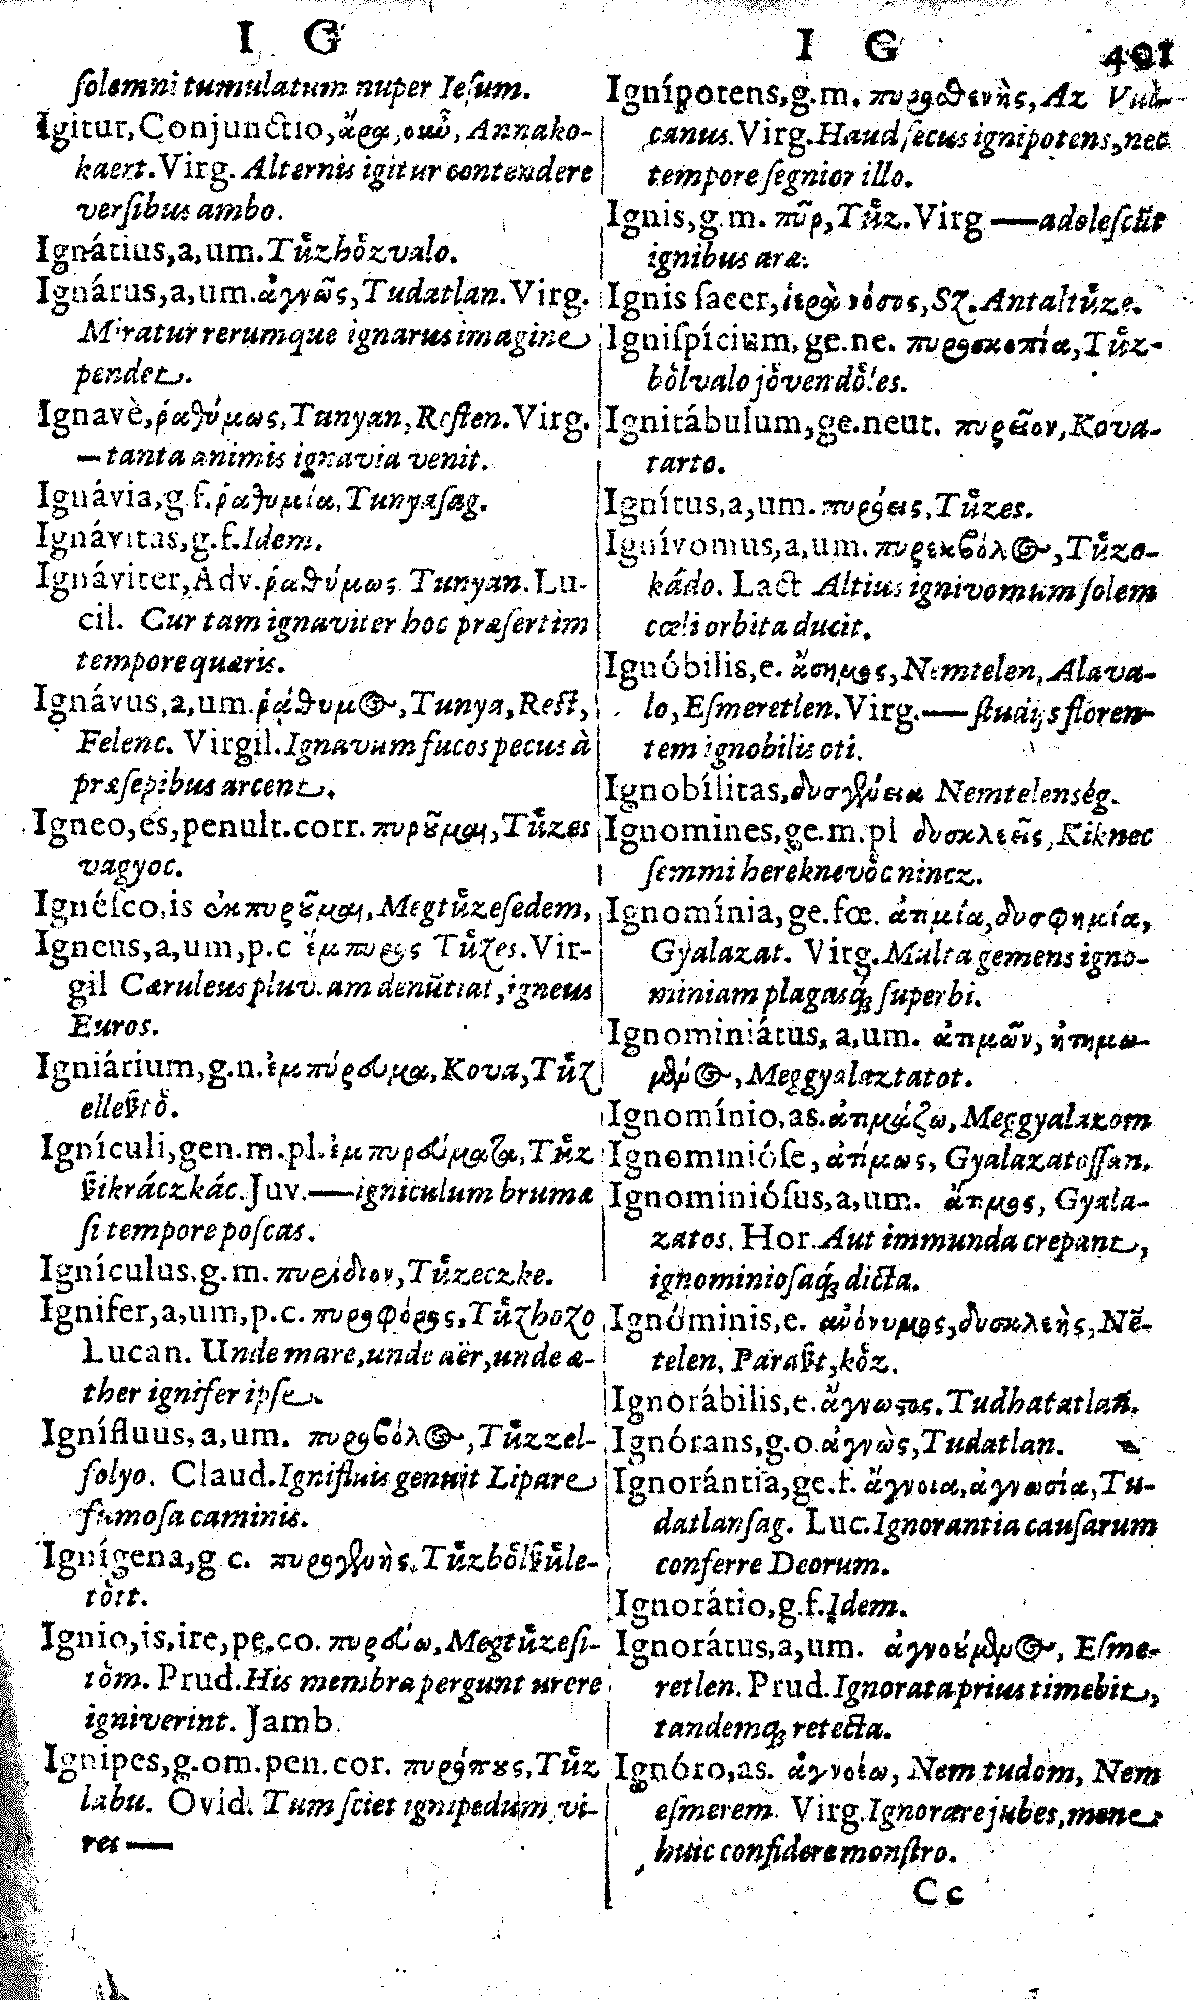 I G
ſolemni tumulatum nuper Ieſum.
Igitur, Conjunctio, ἄρα, οὐκοῦν, Annako-
kaert. Virg. Alternis igitur contendere
verſibus ambo.
Ignátius, a, um. Tűzhőzvalo.
Ignárus, a, um. ἀγνὼς, Tudatlan. Virg.
Miratur rerumque ignarus imagine
pendet.
Ignavè, ῥαθύμως, Tunyan, Reſten. Virg.
— tanta animis ignavia venit.
Ignávia, g. f. ῥαθυμία, Tunyaſag.
Ignávitas, g. f. Idem.
Ignáviter, Adv. ῥαθύμως Tunyan. Lu-
cil. Cur tam ignaviter hoc præſertim
tempore quæris.
Ignávus, a, um. ῥάθυμος, Tunya, Reſt,
Felenc. Virgil. Ignavum fucos pecus à
præſepibus arcent.
Igneo, es, penult. corr. πυροῦμαι, Tűzes
vagyoc.
Ignéſco, is ἐκπυροῦμαι, Megtűzeſedem,
Igneus, a, um, p. c ἔμπυρος Tűzes. Vir-
gil Cæruleus pluviam denũtiat, igneus
Euros.
Igniárium, g. n. ἐμπύρευμα, Kova, Tűz
ellevͤtő.
Ignículi, gen. m. pl. ἐμπυρεύματα, Tűz
ſikráczkác. Juv. — igniculum brumæ
ſi tempore poſcas.
Ignículus, g. m. πυρίδιον, Tűzeczke.
Ignifer, a, um, p. c. πυροφόρος, Tűzhozo
Lucan. Unde mare, unde aër, unde æ-
ther ignifer ipſe.
Ignífluus, a, um. πυροβόλος, Tűzzel-
folyo. Claud. Ignifluis genuit Lipare
fumoſa caminis.
Ignígena, g c. πυρογενὴς, Tűzbőlſzűle-
tőtt.
Ignio, is, ire, pe. co. πυρεύω, Megtűzeſi-
tőm. Prud. His membra pergunt urere
igniverint. Jamb.
Ignipes, g. om. pen. cor. πυρόπους, Tűz
labu. Ovid. Tum ſciet ignipedum vi-
res —
I G 401
Ignípotens, g. m. πυροσθενὴς, Az Vul-
canus. Virg. Haud ſecus ignipotens, nec
tempore ſegnior illo.
Ignis, g. m. πῦρ, Tűz. Virg — adoleſcũt
ignibus aræ.
Ignis ſacer, ἱερὰ νόσος, Sz. Antaltűze.
Igniſpícium, ge. ne. πυροσκοπία, Tűz-
bőlvalo jővendőles.
Ignitábulum, ge. neut. πυρεῖον, Kova-
tarto.
Ignítus, a, um. πυρόεις, Tűzes.
Ignívomus, a, um. πυρεκβόλος, Tűzo-
kádo. Lact Altius ignivomum ſolem
cœli orbita ducit.
Ignóbilis, e. ἄσημος, Nemtelen, Alava-
lo, Eſmeretlen. Virg. — ſtudijs floren-
tem ignobilis oti.
Ignobílitas, δυσγένεια Nemtelenség.
Ignomines, ge. m. pl δυσκλεεῖς, Kiknec
ſemmi hereknevőc nincz.
Ignomínia, ge. fœ. ἀτιμία, δυσφημία,
Gyalazat. Virg. Multa gemens igno-
miniam plagasq; ſuperbi.
Ignominiátus, a, um. ἀτιμῶν, ἠτιμω-
μένος, Meggyalaztatot.
Ignomínio, as. ἀτιμάζω, Meggyalazom
Ignominióſe, ἀτίμως, Gyalazatoſſan.
Ignominióſus, a, um. ἄτιμος, Gyala-
zatos. Hor. Aut immunda crepant,
ignominioſaq; dicta.
Ignóminis, e. ἀνόνυμος, δυσκλεὴς, Nẽ-
telen, Paraſzt, kőz.
Ignorábilis, e. ἄγνωτος. Tudhatatlan.
Ignórans, g. o. ἀγνὼς, Tudatlan.
Ignorántia, ge. f. ἄγνοια, ἀγνωσία, Tu-
datlanſag. Luc. Ignorantia cauſarum
conferre Deorum.
Ignorátio, g. f. Idem.
Ignorátus, a, um. ἀγνοούμενος, Eſme-
retlen. Prud. Ignorata prius timebit,
tandemq; retecta.
Ignóro, as. ἀγνοέω, Nem tudom, Nem
eſmerem. Virg. Ignorare jubes, mene
huic confidere monſtro.
Cc